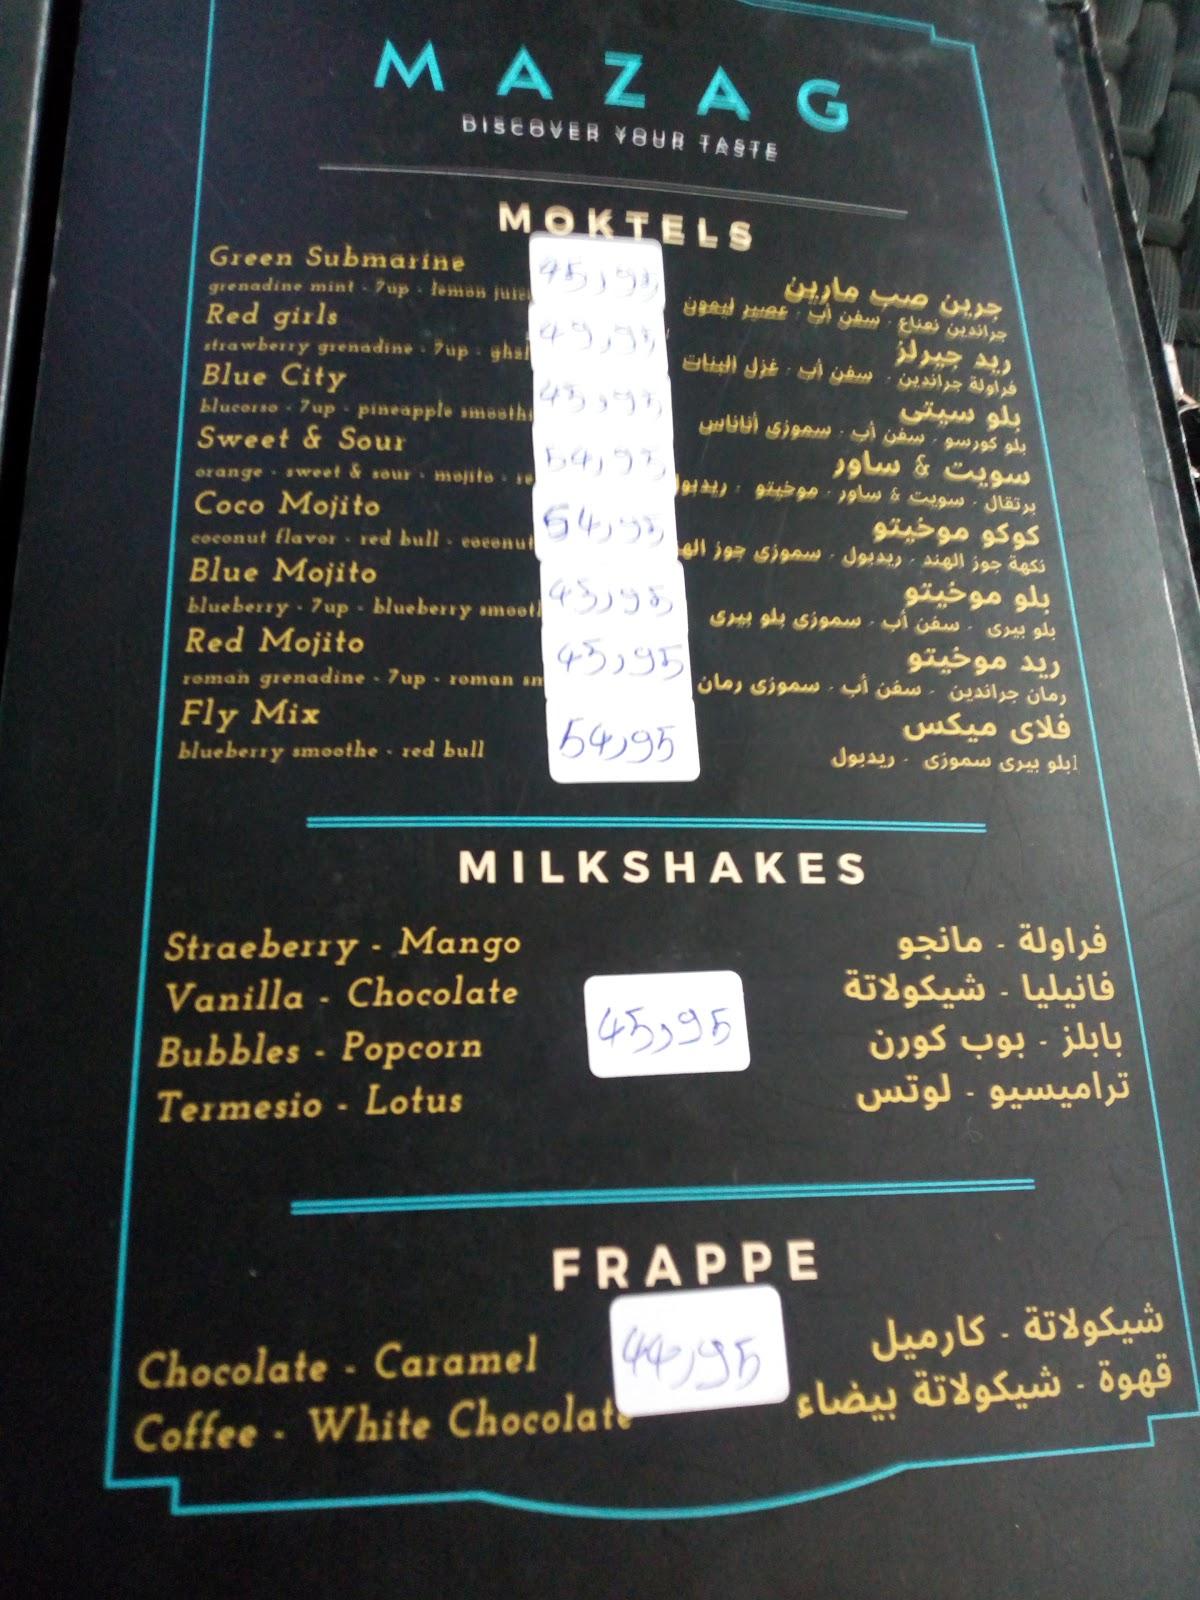 MAZAG
DISCOVER YOUR TASTE
MOKTELS
Green Submarine 45,95 جرين صب مارين
grenadine mint - 7up - lemon جراندين نعناع - سفن أب - عصير ليمون
Red girls 49,95 ريد جيرلز
strawberry grenadine - 7up - فراولة جراندين - سفن أب - غزل البنات
Blue City 45,95 بلو سيتى
blucorso - 7up - pineapple بلو كورسو - سفن أب - سموزى أناناس
Sweet & Sour 54,95 سويت & ساور
orange - sweet & sour - mojito - برتقال - سويت & ساور - موخيتو - ريدبول
Coco Mojito 54,95 كوكو موخيتو
coconut flavor - red bull - coconut نكهة جوز الهند - ريدبول - سموزى جوز
Blue Mojito 45,95 بلو موخيتو
blueberry - 7up - blueberry بلو بيرى - سفن أب - سموزى بلو بيرى
Red Mojito 45,95 ريد موخيتو
roman grenadine - 7up - roman رمان جراندين - سفن أب - سموزى رمان
Fly Mix 54,95 فلاى ميكس
blueberry smoothe - red bull بلو بيرى سموزى - ريدبول
MILKSHAKES
Straeberry - Mango فراولة - مانجو
Vanilla - Chocolate فانيليا - شيكولاتة
45,95
Bubbles - Popcorn بابلز - بوب كورن
Termesio - Lotus تراميسيو - لوتس
FRAPPE
Chocolate - Caramel 44,95 شيكولاتة - كارميل
Coffee - White Chocolate قهوة - شيكولاتة بيضاء